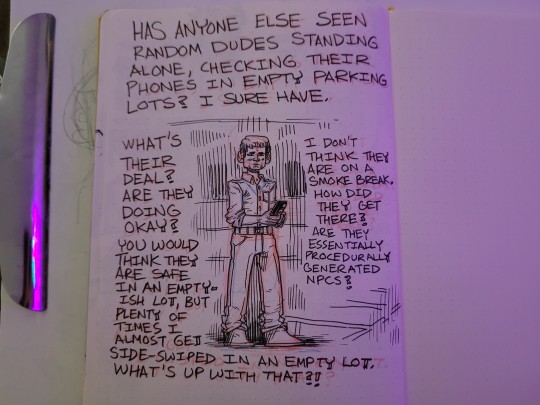 HAS ANYONE ELSE SEEN
RANDOM DUDES STANDING
ALONE, CHECKING THEIR
PHONES IN EMPTY PARKING
LOTS? I SURE HAVE.
WHAT'S
THEIR
DEAL?
ARE THEY
DOING
OKAY?
YOU WOULD
THINK THEY
ARE SAFE
IN AN EMPTY-
ISH LOT, BUT
PLENTY OF
TIMES I
ALMOST GET
SIDE-SWIPED IN AN EMPTY LOT.
WHAT'S UP WITH THAT?!
I DON'T
THINK THEY
ARE ON A
SMOKE BREAK.
HOW DID
THEY GET
THERE?
ARE THEY
ESSENTIALLY
PROCEDURALLY
GENERATED
NPCS?